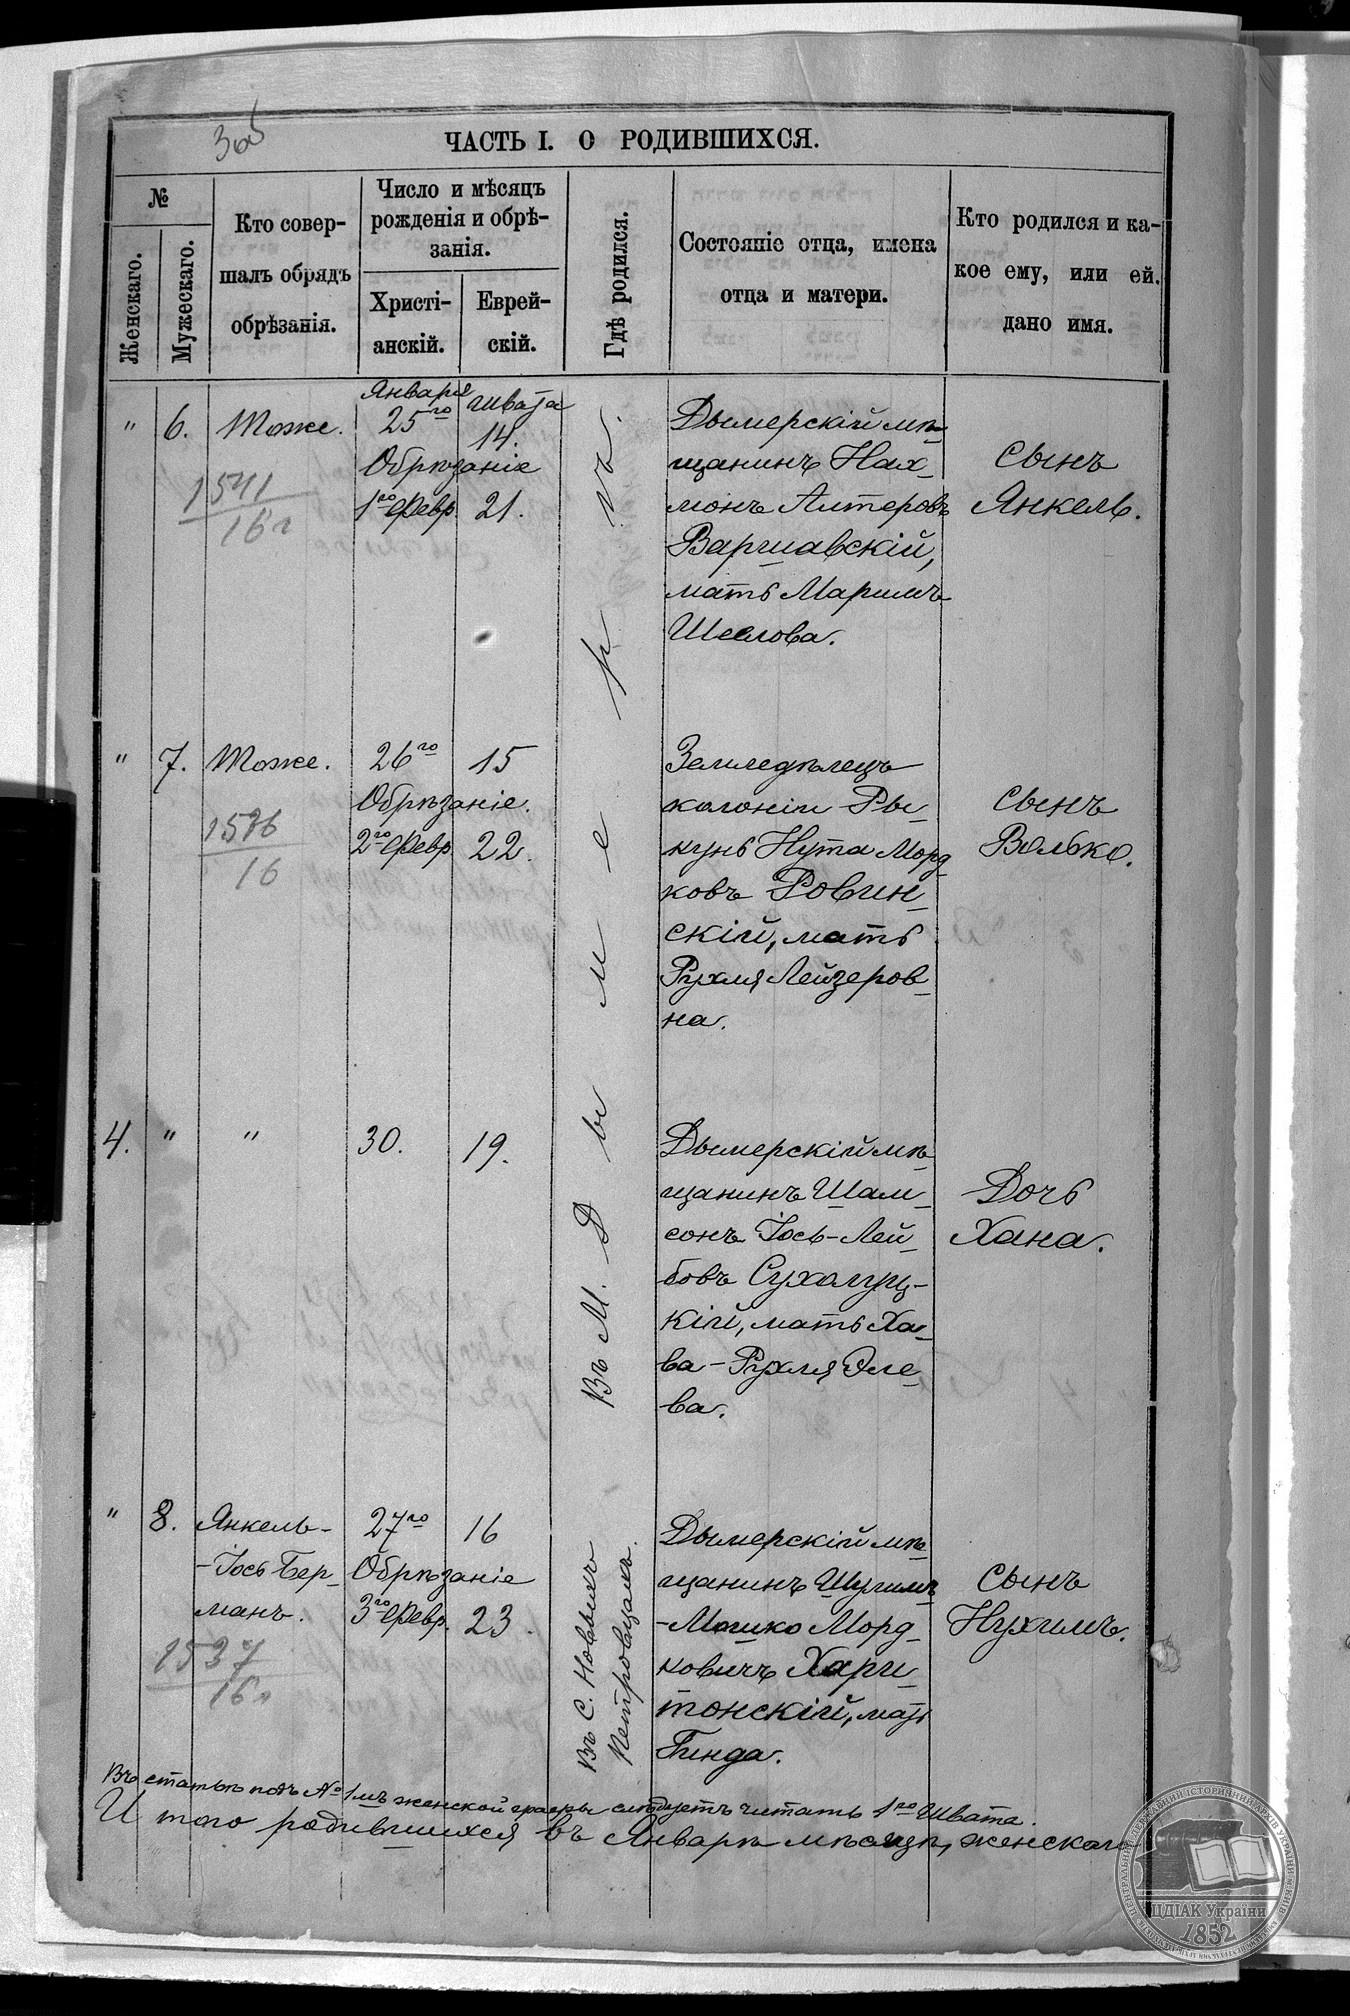 3об
ЧАСТЬ I. О РОДИВШИХСЯ.
№
Женскаго.
Мужескаго.
Кто совер-
шалъ обрядъ
обрѣзанія.
Число и мѣсяцъ
рожденія и обрѣ-
занія.
Христі-
анскій.
Еврей-
скій.
Гдѣ родился.
Состояніе отца, имена
отца и матери.
Кто родился и ка-
кое ему, или ей.
дано имя.
" 6. Тоже.
Января
25го
Шевата
14.
Обрѣзаніе
1го Февр. 21.
1541
16 г
Дымерскій мѣ-
щанинъ Нах-
монъ Алтеровъ
Варшавскій,
мать Маримъ
Шеелова.
Сынъ
Янкель.
" 7. Тоже.
26го 15
Обрѣзаніе.
2го Февр. 22.
1536
16
Земледѣлецъ
колоніи Ры-
кунь Нута Морд-
ковъ Ровин-
скій, мать
Рухля Лейзеров-
на.
Сынъ
Волько.
4. " " 30. 19.
Дымерскій мѣ-
щанинъ Шам-
сонъ Іось-Лей-
бовъ Сухолуц-
кій, мать Ха-
ва-Рухля Эле-
ва.
Дочь
Хана.
Въ М. Дымерѣ.
" 8. Янкель-
-Іось Бер-
манъ.
27го 16
Обрѣзаніе
3го Февр. 23.
1537
16 г
Въ С. Новыхъ
Петровцахъ.
Дымерскій мѣ-
щанинъ Шулимъ
-Мошко Морд-
ковичъ Хари-
тонскій, мать
Гинда.
Сынъ
Нухимъ.
Въ статьѣ подъ № 1мъ женской графы слѣдуетъ читать 1го Швата.
И того родившихся въ Январѣ мѣсяцѣ, женскаго
ЦЕНТРАЛЬНИЙ ДЕРЖАВНИЙ ІСТОРИЧНИЙ АРХІВ УКРАЇНИ, М.КИЇВ
ЦДІАК України
1852